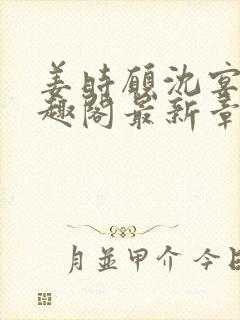 姜時願沈宴
趣阁最新章
月並甲介 今日